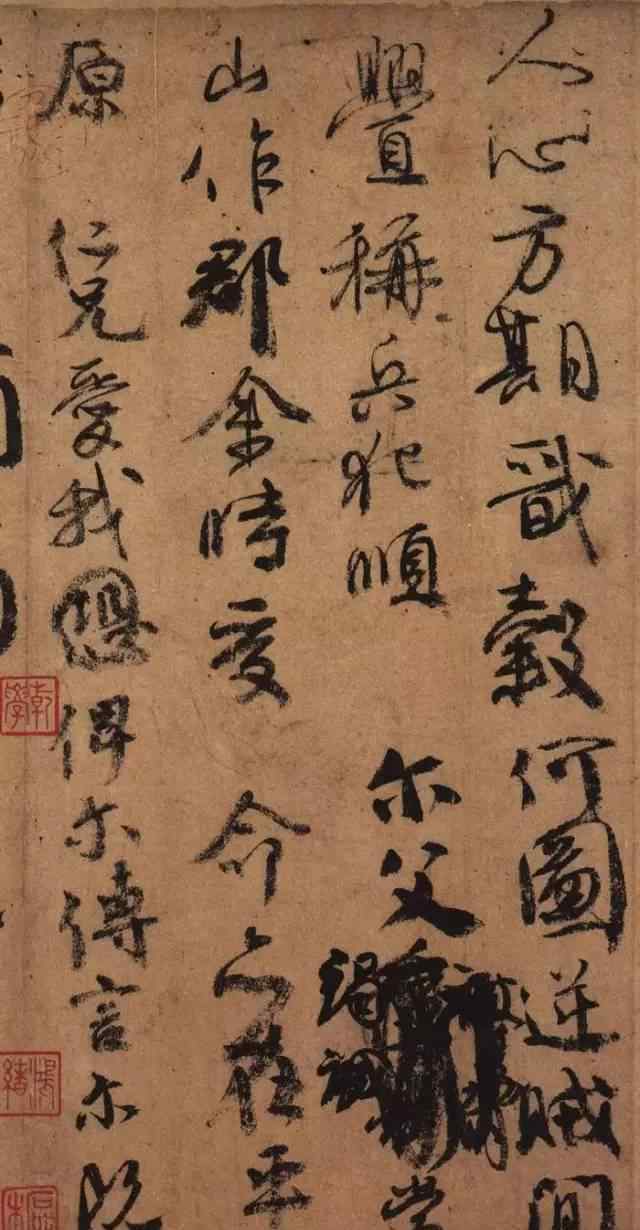 人心方期戩穀何圖逆賊間
舋稱兵犯順 尔父竭誠常
山作郡余時受 命亦在平
原 仁兄愛我俾尔傳言尔既